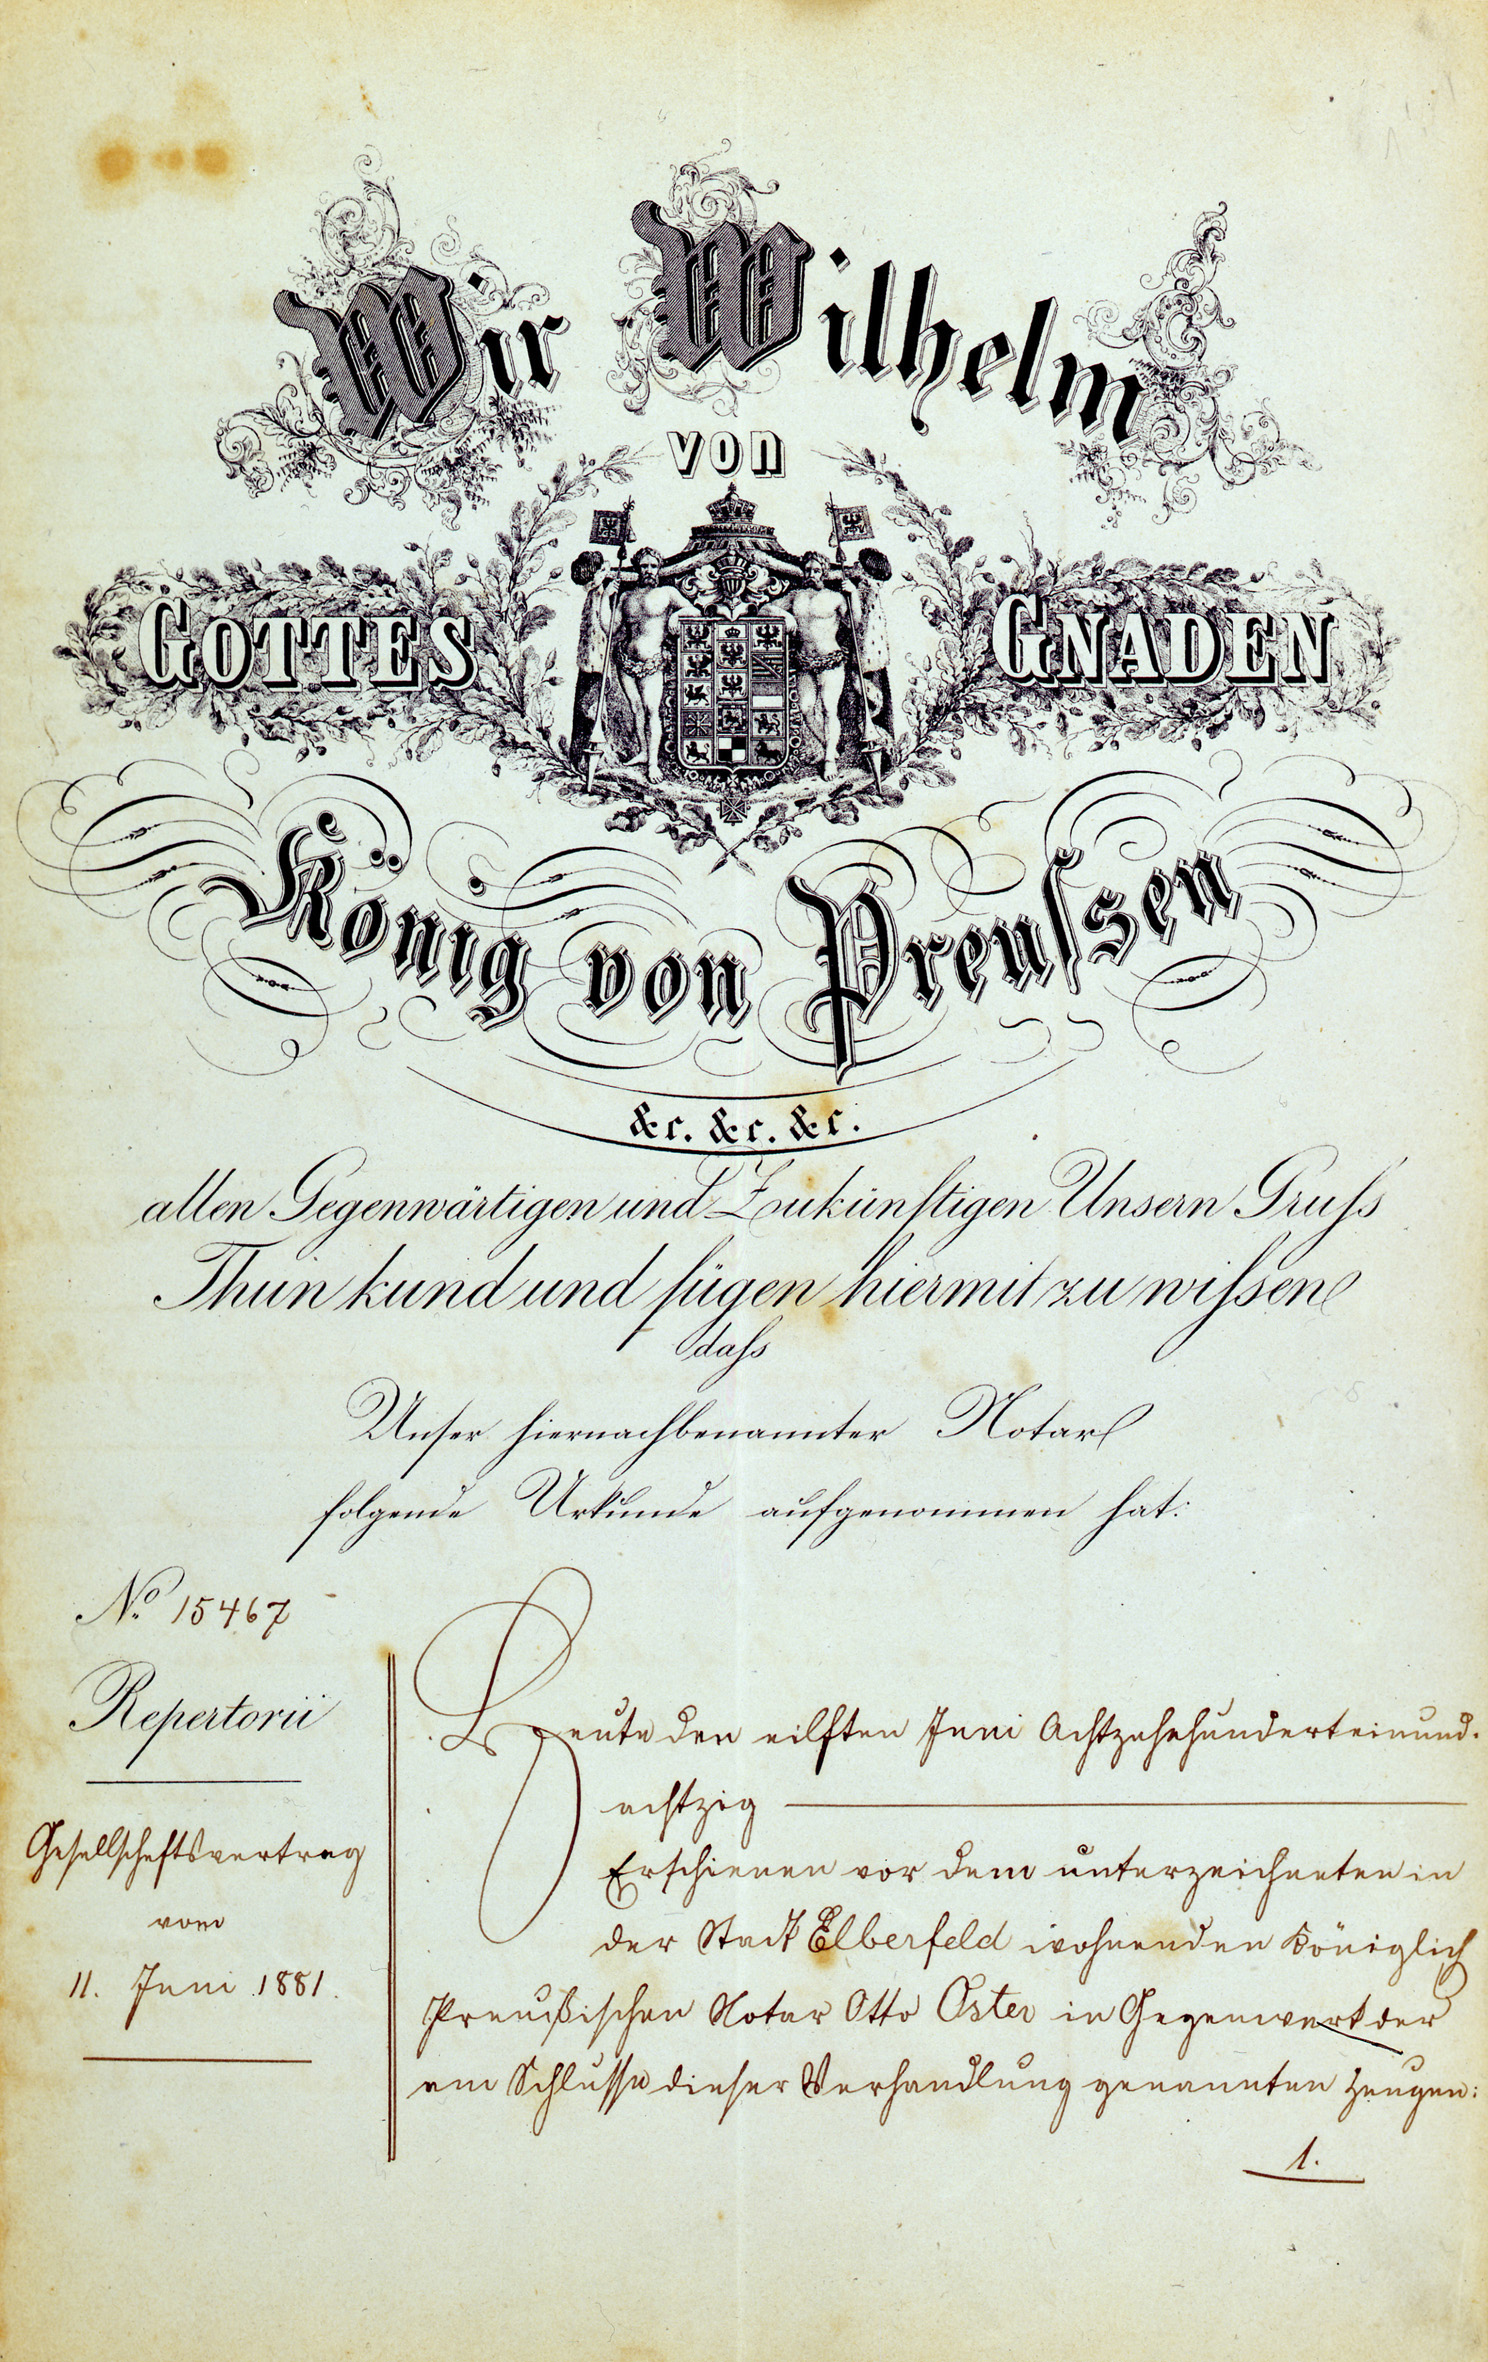 Wir Wilhelm
von
GOTTES GNADEN
König von Preuſsen
&c. &c. &c.
allen Gegenwärtigen und Zukünftigen Unsern Gruſs
Thun kund und fügen hiermit zu wiſsen
daſs
Unser hiernachbenannter Notar
folgende Urkunde aufgenommen hat:
No. 15467
Repertorii
Gesellschaftsvertrag
vom
11. Juni 1881.
Heute den eilften Juni Achtzehnhunderteinund-
achtzig
Erschienen vor dem unterzeichneten in
der Stadt Elberfeld wohnenden Königlich
Preußischen Notar Otto Oster in Gegenwart der
am Schlusse dieser Verhandlung genannten Zeugen:
1.